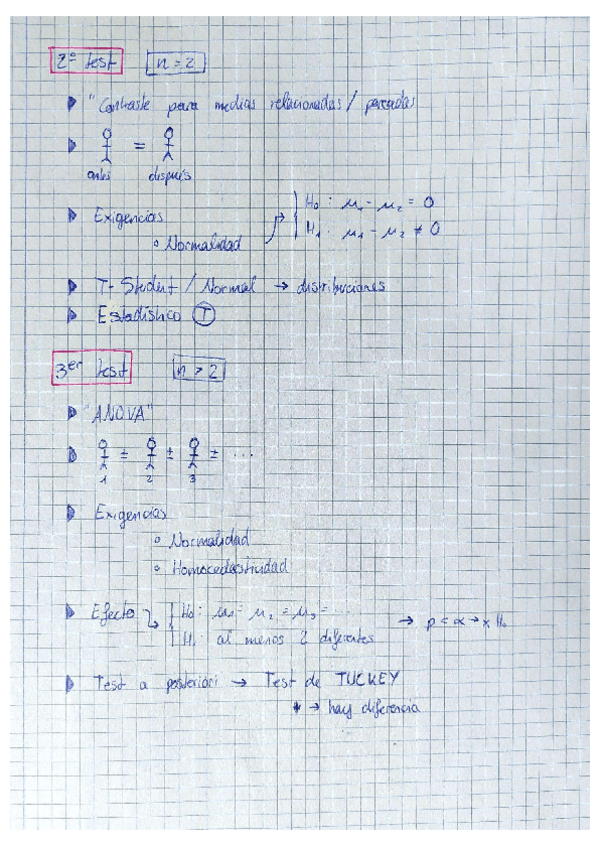 2º test n = 2
"Contraste para medias relacionadas / pareadas
=
antes después
H₀ : μ₁ - μ₂ = 0
Exigencias
H₁ : μ₁ - μ₂ ≠ 0
Normalidad
T-Student / Normal → distribuciones
Estadístico T
3er test n > 2
"ANOVA"
± ± ± ...
1 2 3
Exigencias
Normalidad
Homocedasticidad
Efecto H₀ : μ₁ = μ₂ = μ₃ = ... → p < α → x H₀
H₁ al menos 2 diferentes
Test a posteriori → Test de TUCKEY
* → hay diferencia